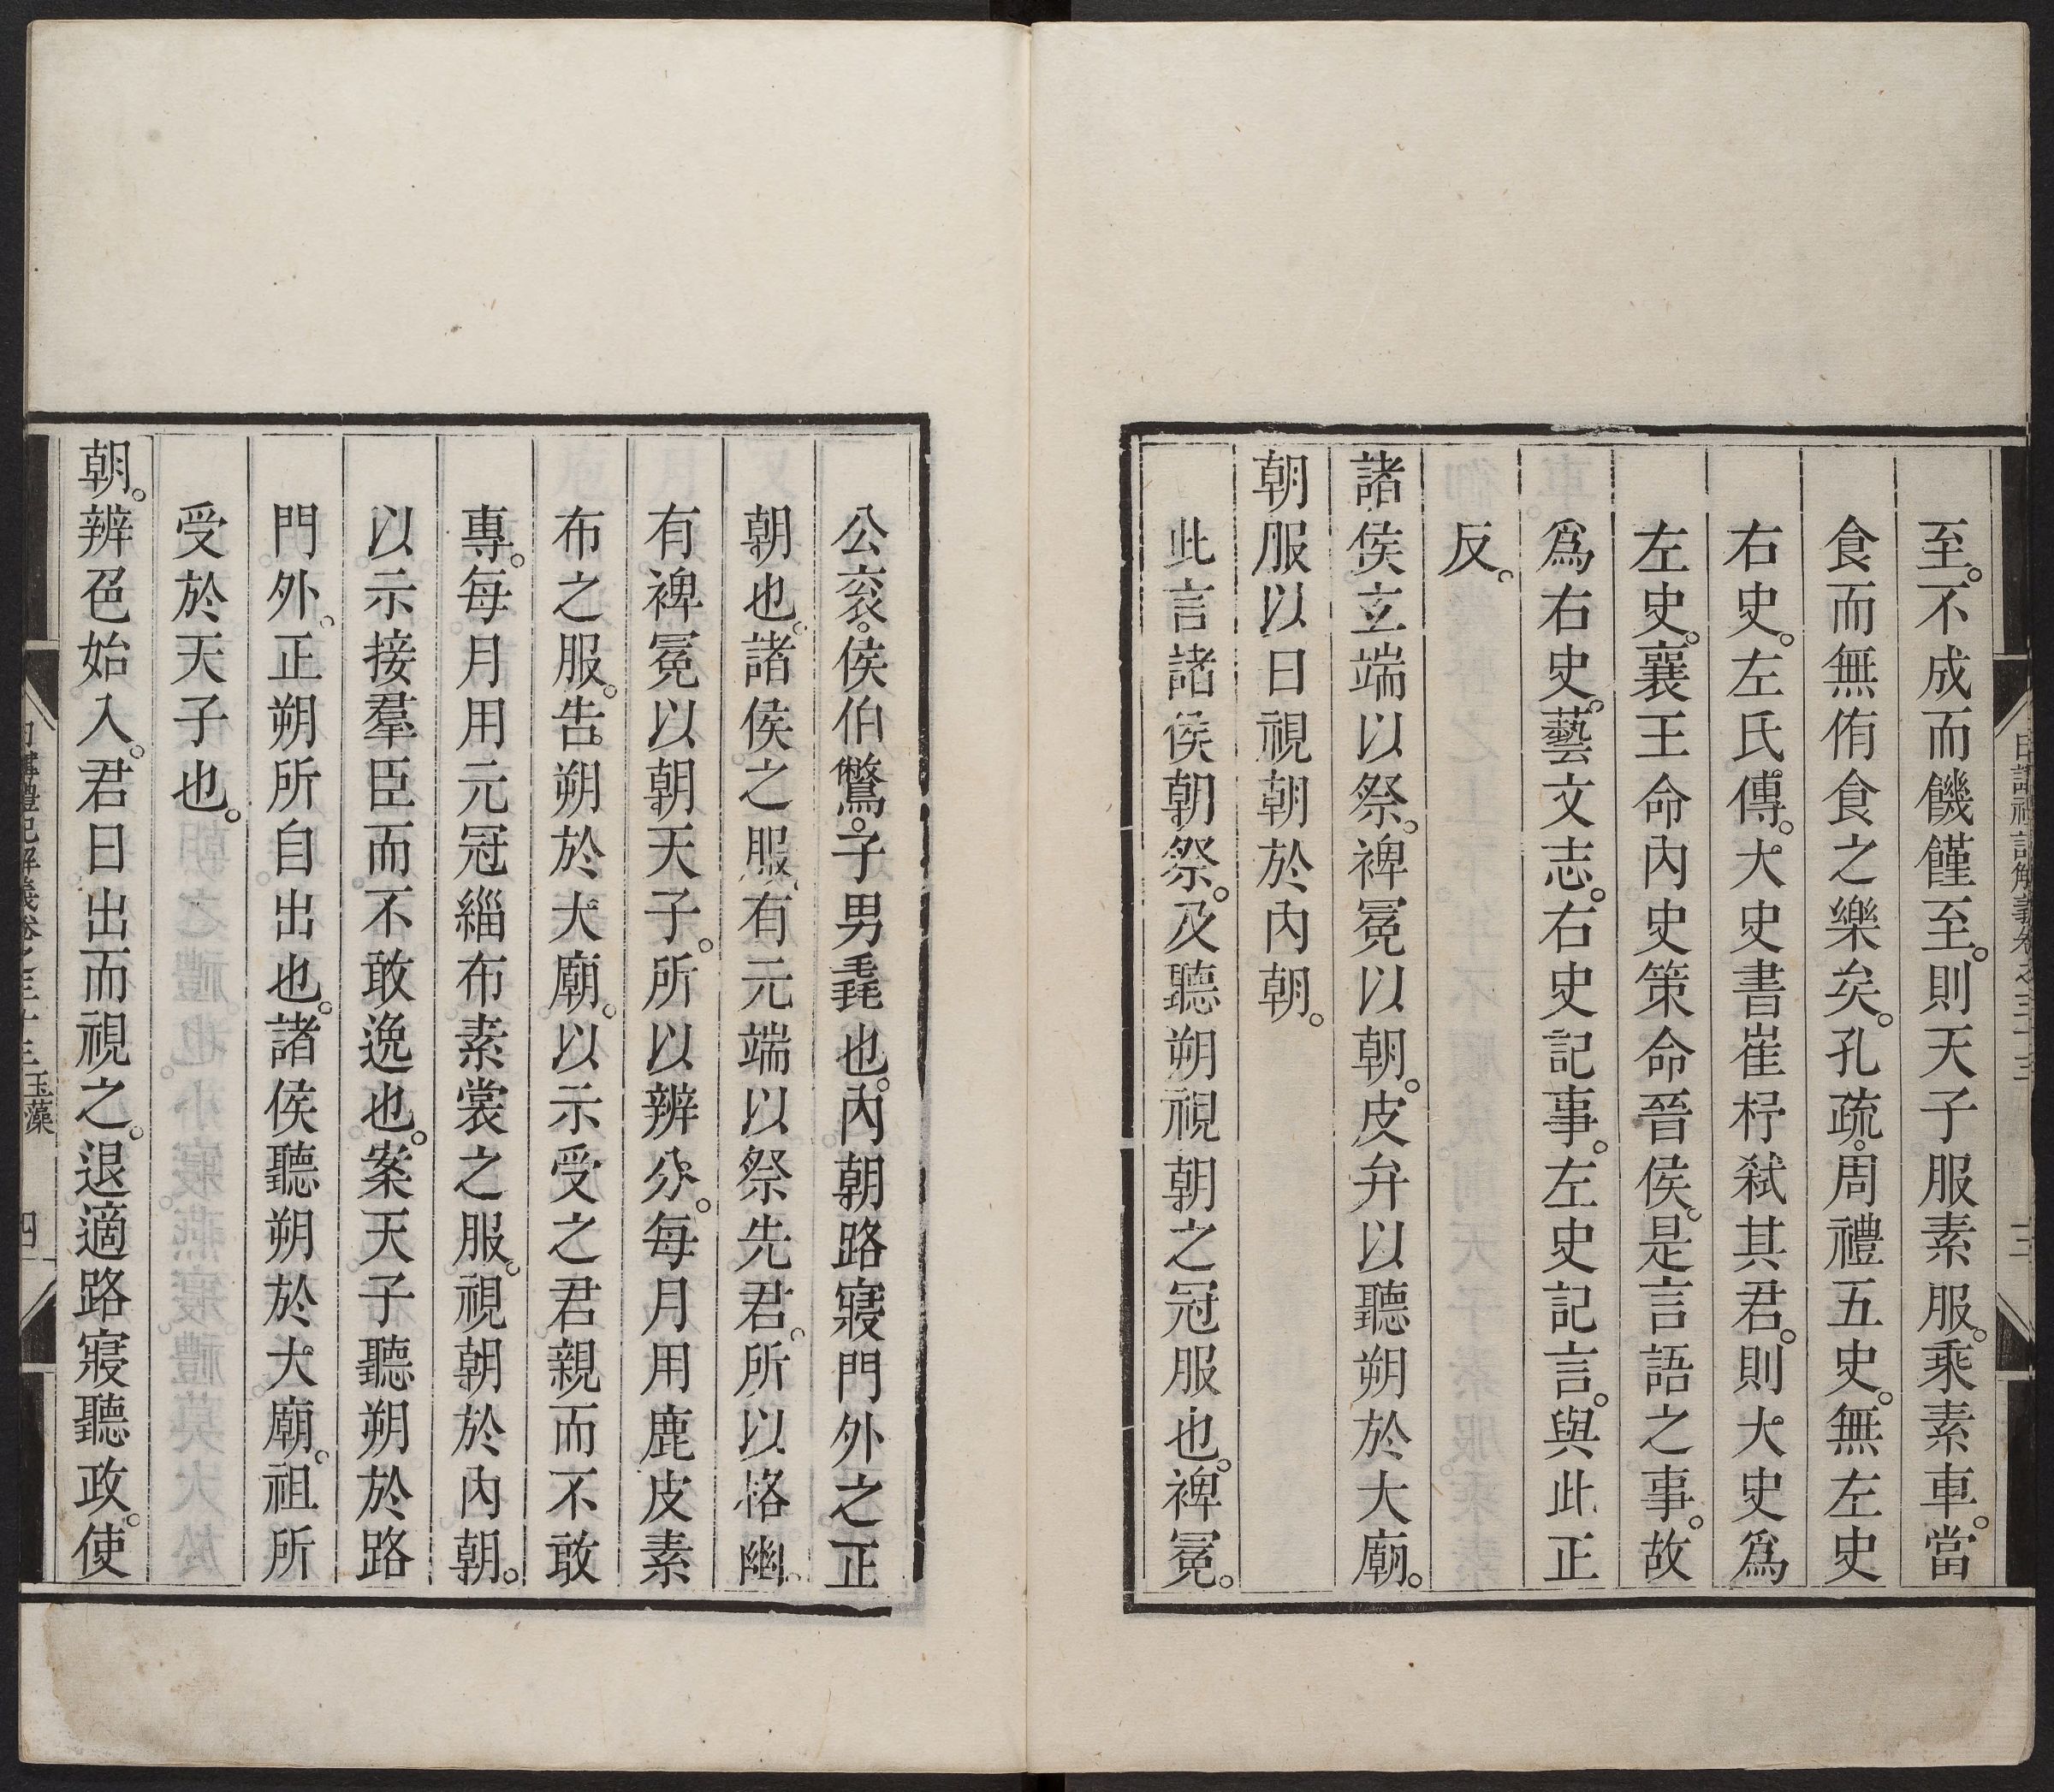 至。不成而饑饉至。則天子服素服。乘素車。當
食而無侑食之樂矣。孔疏。周禮五史。無左史
右史。左氏傳。大史書崔杼弑其君。則大史爲
左史。襄王命內史策命晉侯。是言語之事。故
爲右史。藝文志。右史記事。左史記言。與此正
反。
諸侯玄端以祭。裨冕以朝。皮弁以聽朔於大廟。
朝服以日視朝於內朝。
此言諸侯朝祭。及聽朔視朝之冠服也。裨冕。
公衮。侯伯鷩。子男毳也。內朝路寢門外之正
朝也。諸侯之服。有元端以祭先君。所以格幽。
有裨冕以朝天子。所以辨分。每月用鹿皮素
布之服。告朔於大廟。以示受之君親而不敢
專。每月用元冠緇布素裳之服。視朝於內朝。
以示接羣臣而不敢逸也。案天子聽朔於路
門外。正朔所自出也。諸侯聽朔於大廟。祖所
受於天子也。
朝。辨色始入。君日出而視之。退適路寢聽政。使
日講禮記解義卷之三十三
三
日講禮記解義卷之三十三 玉藻
四